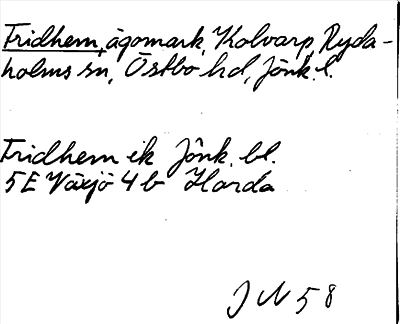 Fridhem, ägomark, Kolvarp, Ryda-
holms sn, Östbo hd, Jönk. l.
Fridhem ik Jönk. bl.
5E Växjö 4b Horda
JN 58